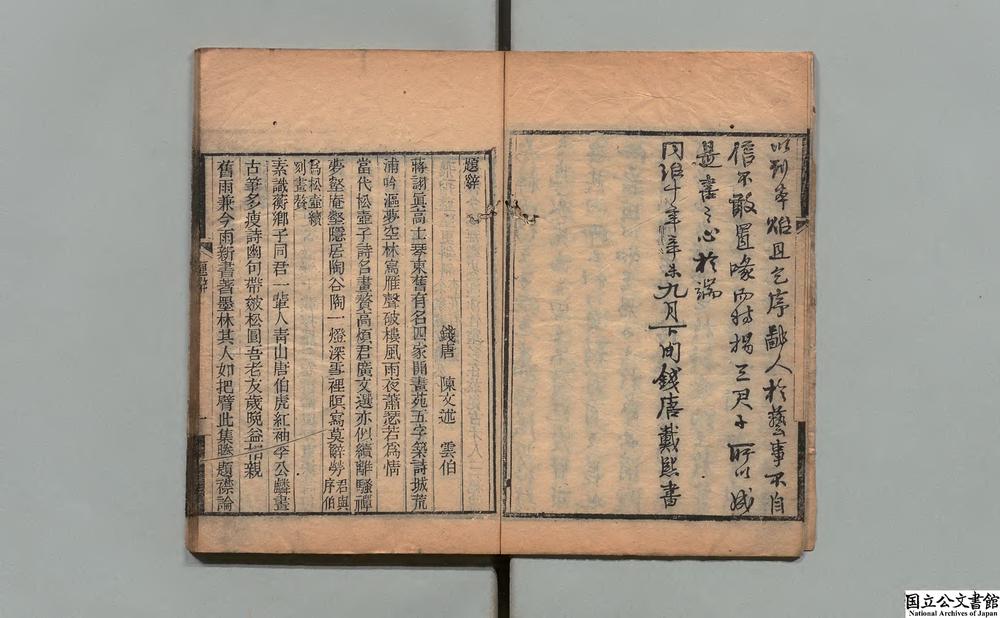 以刻本貽且乞序鄙人於藝事不自
信不敢置喙而特揭三君子所以成
是書之心於端
年 未九月下旬錢唐戴熙書
題辭
錢唐 陳文述 雲伯
蔣詡眞高士琴東舊有名四家開畫苑五字築詩城荒
浦吟漚夢空林寫雁聲破樓風雨夜蕭瑟若爲情
當代松壺子詩名畫贅高煩君廣文選亦似續離騷禪
夢壑庵壑隱居陶谷陶一燈深雪裡暝寫莫辭勞君與序伯
爲松壺續
刻畫贅
素識蘅鄉子同君一輩人靑山唐伯虎紅袖李公麟畫
古筆多瘦詩幽句帶皴松圓吾老友歲晚益情親
舊雨兼今雨新書著墨林其人如把臂此集勝題襟論
題辭
一
国立公文書館
National Archives of Japan